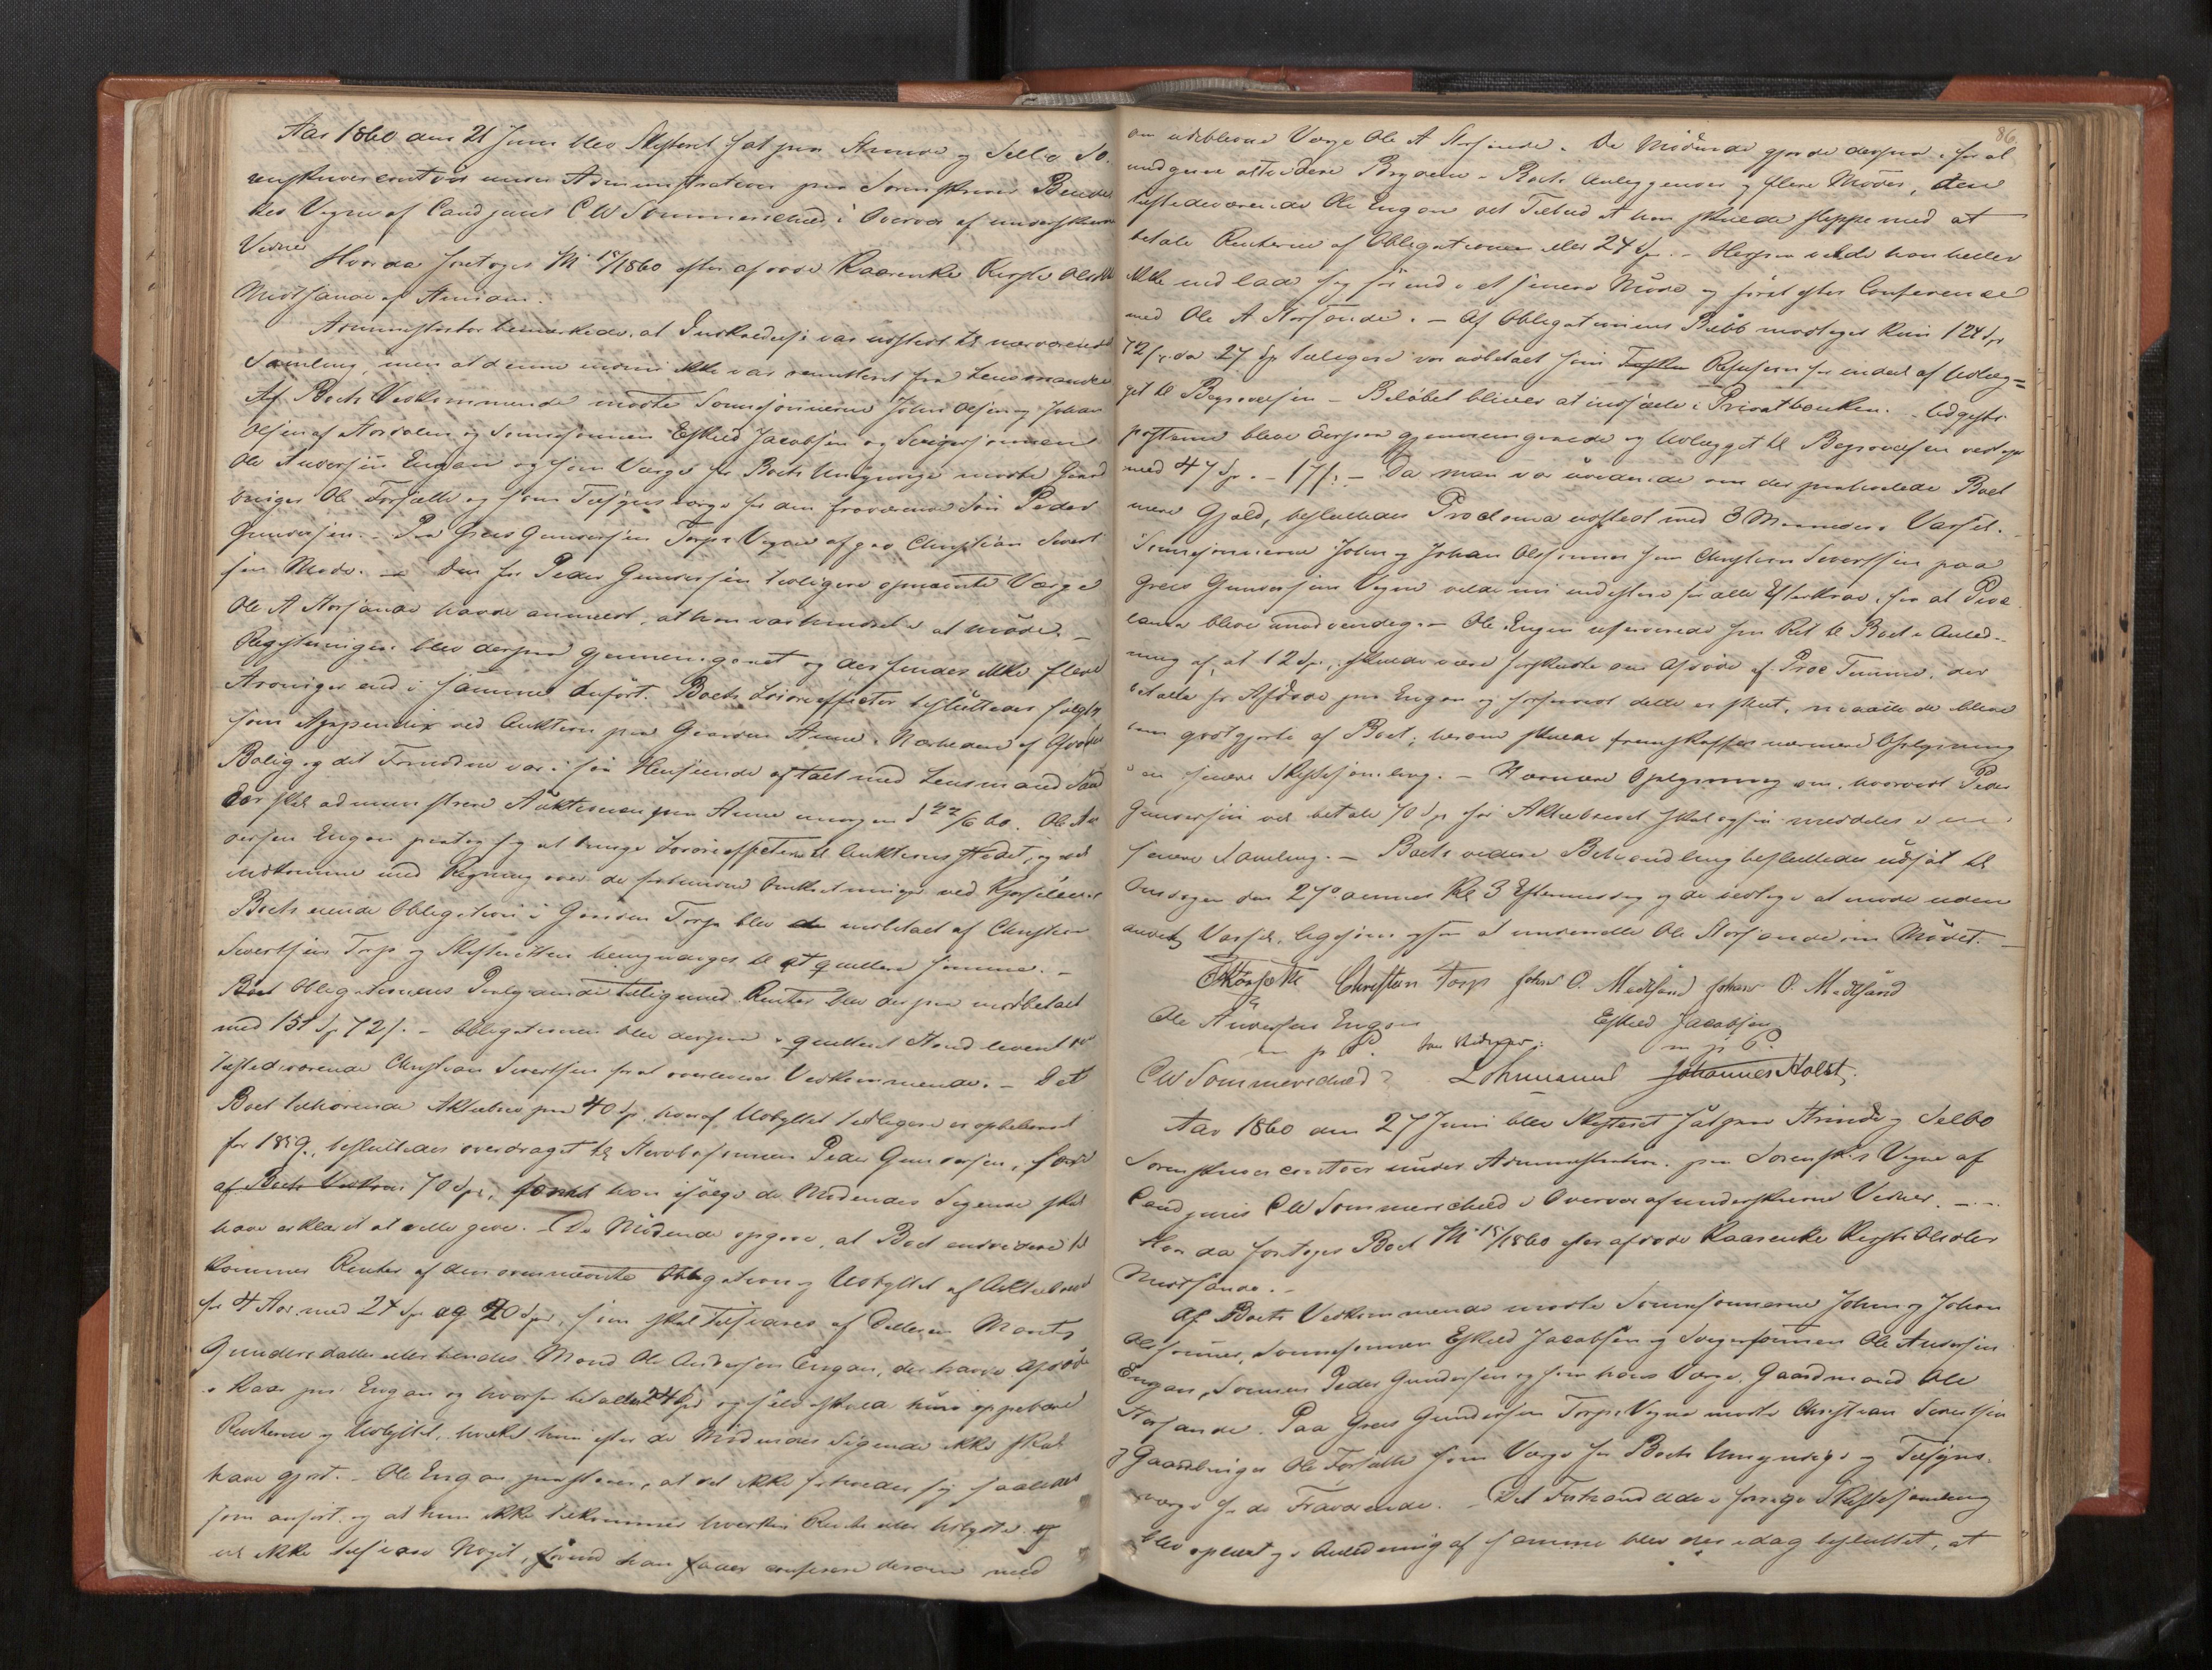 Aar 1860 den 21 Juni blev Skifteret sat paa Strinde og Selbo So-
renskrivercontoir under Administration paa Sorenskriver
des Vegne af Cand juris C W Sommerschild i Overvær af underskrevne
Vidner Hvorda foretoges № 15/1860 efter afdøde Kaarenke Kirsti Olsdtr
Moetsande af
Administrator bemærkede, at Indkaldelse var udstedt til nærværende
Samling, men at denne endnu ikke var remitteret fra Lensmanden
Af Boets Vedkommende mødte Sønnesønnerne John Olsen og Johan
Olsen af Stordalen og Sønnesønnen Eskild Jacobsen og Svigersønnen
Ole Andersen Engan og som Værge for Boets Umyndige mødte Gaard
bruger Ole Forsætte og som Tilsynsværge for den fraværende Søn Peder
Gundersen. - Paa Grers Gundersen Torps Vegne afgav Christian Sivert
sen Møde. - Den for Peder Gundersen tidligere opnævnte Værge
Ole A Storsande havde anmeldt, at han var hindret i at møde. -
Registeringen blev derpaa gjennemgaaet og der fandtes ikke flere
Arvinger end i samme anført. Boets Løsøreeffecter besluttedes solgte
som Appendix ved Auktion paa Gaarden i Nærheden af Afdødes
Bolig og det Fornødne var i saa Henseende aftalt med Lensmand
der skal administrere Auktionen paa morgen d 22/6 60. Ole An
dersen Engan paatog sig at bringe Løsøreeffecterne til Auktionsstedet, og vil
indkomme med Regning over de forbundne Omkostninger ved Kjørselen.
Boets eiende Obligation i Gaarden Torp blev indbetalt af Christian
Sivertsen Torp og Skifteretten bemyndiges til at qvittere samme. -
Obligationens Paalydende tilligemed Renter blev derpaa indbetalt
med 151 Sp 72 s. - Obligationen blev derpaa i qvitteret Stand leveret til
tilstedeværende Christian Sivertsen for at overleveres Vedkommende. - Det
Boet tilhørende Aktiebrev paa 40 Sp. hvoraf Udbyttet tidligere er oppebaaret
for 1859, besluttedes overdraget til Stervbosønnen Peder Gundersen, for
af Boets 70 Spd, som han ifølge de Mødendes Sigende skal
have erklæret at ville give. - De Mødende opgave, at Boet endvidere til
kommer Renter af den ovennævnte Obligation og Udbyttet af Aktiebrevet
for 4 Aar med 24 Sp og 20 Spd, som skal tilsvares af Datteren Marit
Gundersdatter eller hendes Mand Ole Andersen Engan, der havde Afdøde
i Kaar paa Engan og hvorfor betaltes 24 Spd og selv skulde hun oppebære
Renterne og Udbyttet, hvilket hun efter de Mødendes Sigende ikke skal
have gjort. - Ole Engan paastaar, at det ikke forholder sig saaledes
som anført, og at han ikke tilkommer hverken Rente eller Udbytte og
vil ikke tilsvare Noget, førend han faaer conferere derom med
86.
den udeblevne Værge Ole A Storsande. De Mødende gjorde derpaa, for at
undgaae at videre Brydderi - Boets Anliggender og flere Møder, den
tilstedeværende Ole Engan det Tilbud at han skulde slippe med at
betale Renterne af Obligationen eller 24 Sp. - Herpaa vilde han heller
ikke indlade sig før end i et senere Møde og først efter Conference
med Ole A Storsande. - Af Obligationens Beløb modtoges kun 124 Spd
72 s, da 27 Sp tidligere var udbetalt som Refusion for endeel af Udlæg=
get til Begravelsen - Beløbet bliver at indsætte i Privatbanken. - Udgifts
posterne bleve derpaa gjennemgaaede og Udlægget til Begravelsen vedtoges
med 47 Sp. - 17 s. - Da man var uvidende om der paahvilede Boet
mere Gjæld, besluttedes Proclama udstedt med 3 Maaneders Varsel. -
Sønnesønnerne John og Johan Olssønner som Christian Sivertsen paa
Grers Gundersens Vegne vilde indestaae for alle Efterkrav, for at Proc
lama blive unødvendig. - Ole Engan reserverede sin Ret til Boet i Anled-
ning af, at 12 Spd, skulde være forskudte om Afdøde af Proc Temme, der
betalte for Afdøde paa Engan og forsaavidt dette er skeet, maatte de blive
ham godtgjorte af Boet; herom skulde fremskaffes nærmere Oplysning
i en senere Skiftesamling. - Nærmere Oplysning om, hvorvidt Peder
Gundersen vil betale 70 Sp for Aktiebrevet skal ogsaa meddeles i en
senere Samling. - Boets videre Behandling besluttedes udsat til
Onsdagen den 27de dennes Kl 3 Eftermiddag og de vedtoge at møde uden
andet Varsel, ligesom ogsaa at underrette Ole Storsande om Mødet. -
Christian Torp John O. Mædtsand Johan O. Mædtsand
Ole Andersen Engan Eskild Jacobsen
m p P. m p P.
C W Sommerschild Lohrmand Johannes Holst.
Aar 1860 den 27 Juni blev Skifteret sat paa Strinde og Selbo
Sorenskrivercontoir under Administration paa Sorenskr.s Vegne af
Cand juris C W Sommerschild i Overvær af underskrevne Vidner. -
Hvorda foretoges Boet № 15/1860 efter afdøde Kaarenke Kirsti Olsdtr
Moetsande. -
Af Boets Vedkommende mødte Sønnesønnerne John og Johan
Olssønner, Sønnesønnen Eskild Jacobsen og Svigersønnen Ole Andersen
Engan, Sønnen Peder Gundersen og som hans Værge, Gaardmand Ole
Storsande. Paa Grers Gundersen Torps Vegne mødte Christian Sivertsen
og Gaardbruger Ole Forsætte som Værge for Boets Umyndige og Tilsyns-
værge for de Fraværende. - Det Forhandlede i forrige Skiftesamling
blev oplæst og i Anledning af samme blev der idag besluttet, at